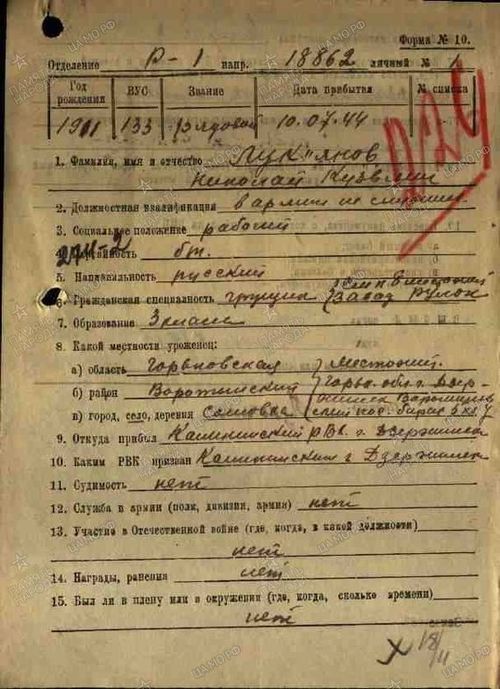 Форма № 10.
Отделение Р-1 напр. 18862 личный № 1
Год рождения ВУС Звание Дата прибытия № списка
1911 133 Рядовой 10.07.44
224
1. Фамилия, имя и отчество Лук"янов
Николай
2. Должностная квалификация в армии не
3. Социальное положение рабочий
4. Партийность бп.
5. Национальность русский
6. Гражданская специальность грузчик
завод
7. Образование 3 класс
8. Какой местности уроженец:
а) область Горьковская
б) район
в) город, село, деревня
9. Откуда прибыл Калининский РВК г Дзержинск
10. Каким РВК призван Калининским г Дзержинск
11. Судимость нет
12. Служба в армии (полк, дивизия, армия) нет
13. Участие в Отечественной войне (где, когда, в какой должности)
нет
14. Награды, ранения нет
15. Был ли в плену или в окружении (где, когда, сколько времени)
нет
ЦАМО.РФ